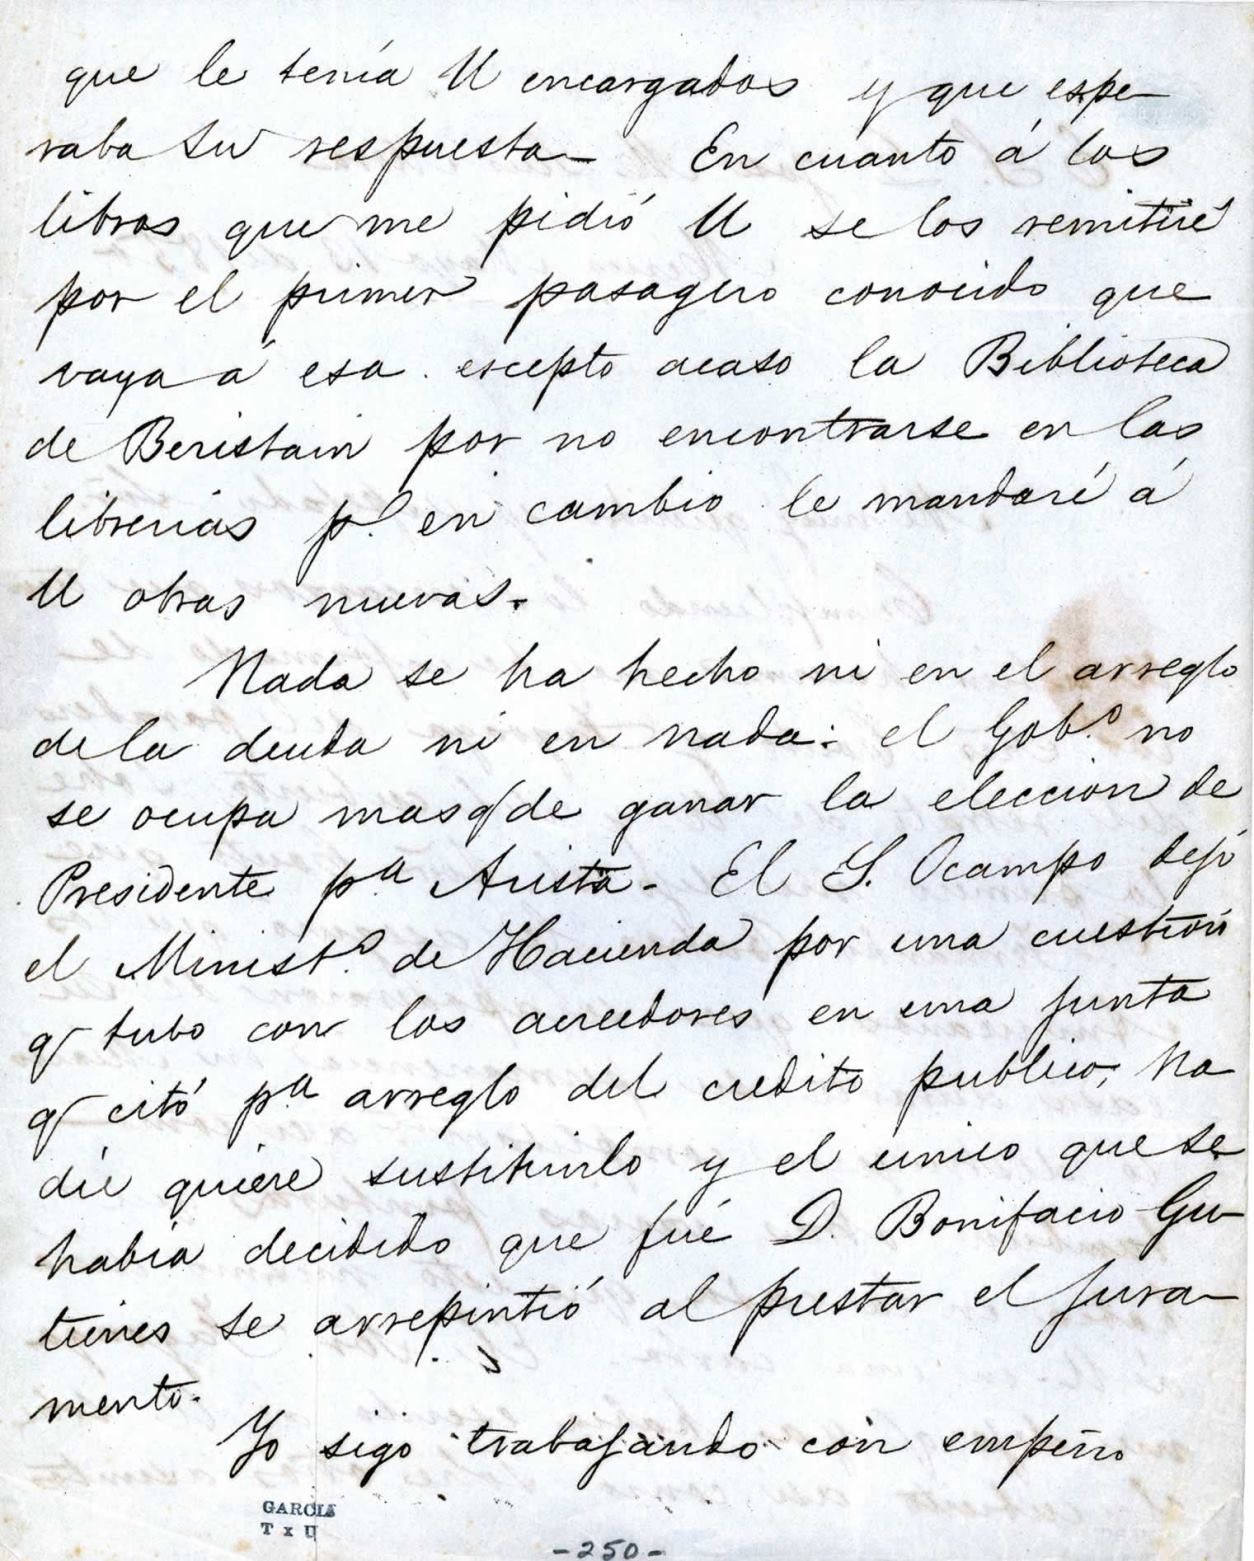 que le tenía U encargados y que espe-
raba su respuesta- En cuanto á los
libros que me pidió U se los remitiré
por el primer pasagero conocido que
vaya á esa. escepto acaso la Biblioteca
de Beristain por no encontrarse en las
librerias p.o en cambio le mandaré á
U obras nuevas.
Nada se ha hecho ni en el arreglo
de la deuda ni en nada: el Gob.o no
se ocupa mas q de ganar la eleccion de
Presidente pa Arista- El S. Ocampo dejó
el Minist.o de Hacienda por una cuestión
q tubo con los acreedores en una junta
q citó pa arreglo del credito publico; na
die quiere sustituirlo y el unico que se
habia decidido que fué D. Bonifacio Gu-
tierres se arrepintió al prestar el jura-
mento.
Yo sigo trabajando con empeño
GARCIA
T x U
-250-